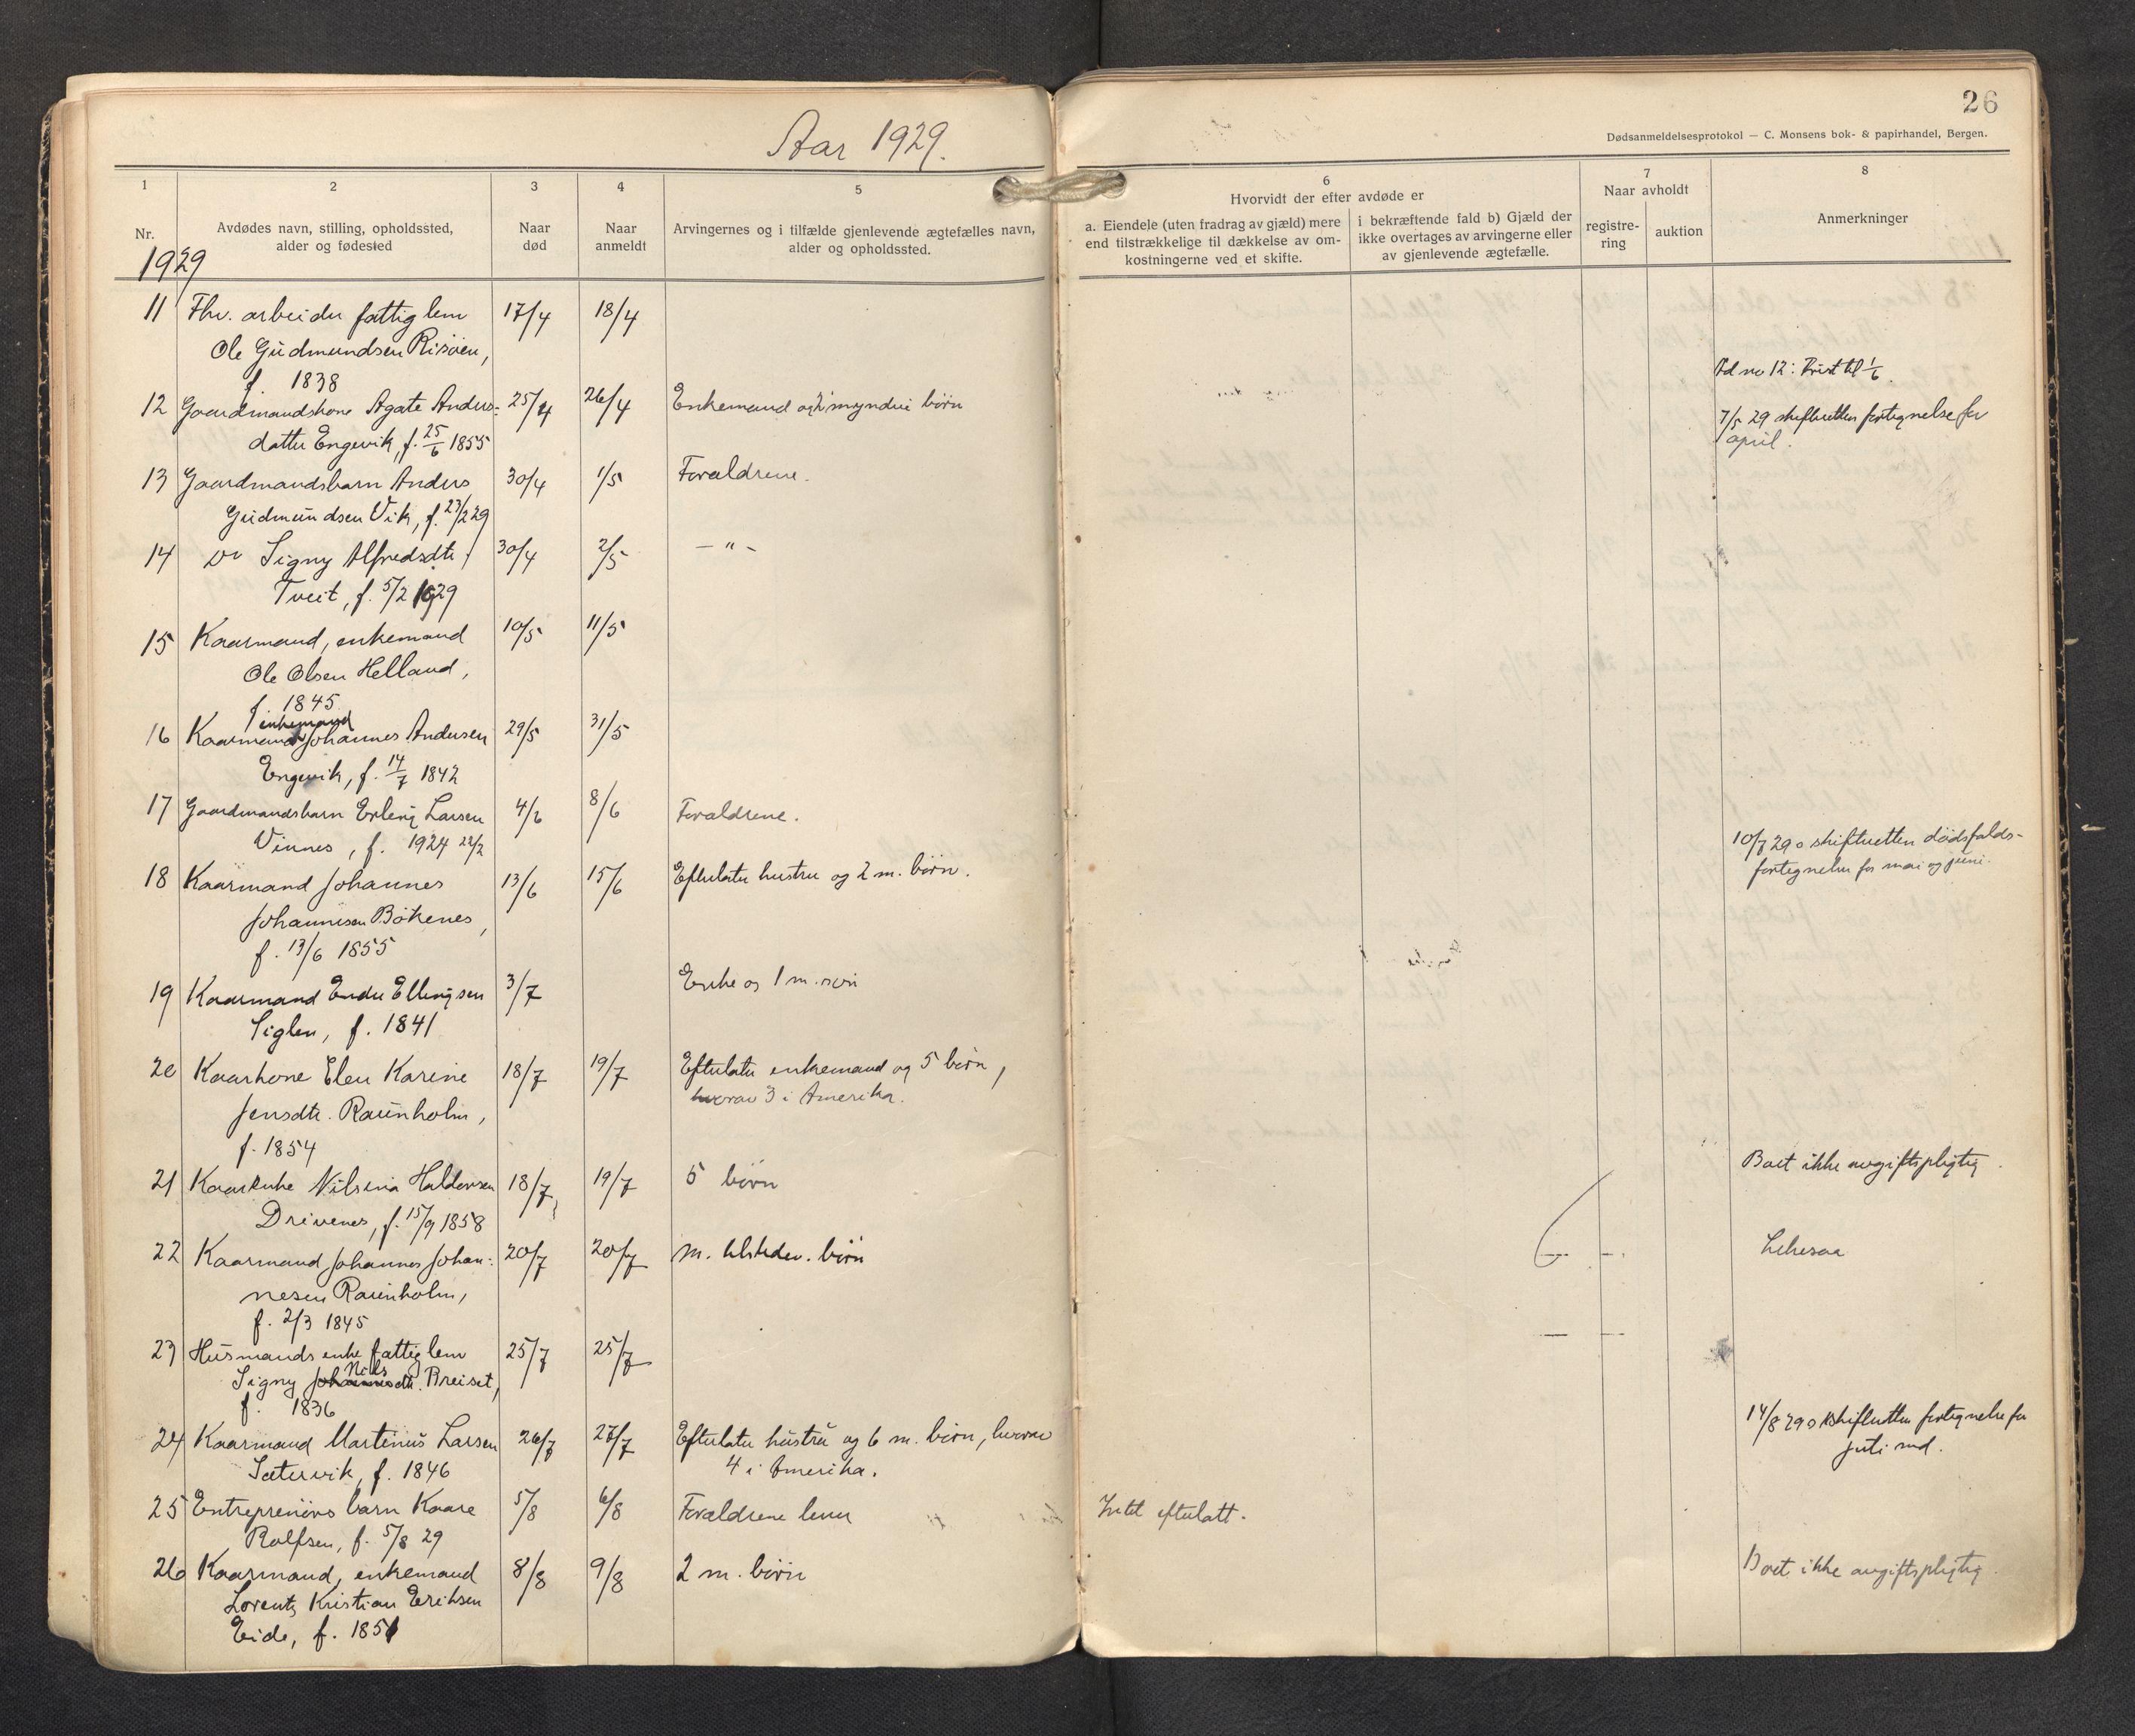 Aar 1929.
26
Dødsanmeldelsesprotokol — C. Monsens bok- & papirhandel, Bergen.
1
Nr.
2
Avdødes navn, stilling, opholdssted,
alder og fødested
3
Naar
død
4
Naar
anmeldt
5
Arvingernes og i tilfælde gjenlevende ægtefælles navn,
alder og opholdssted.
6
Hvorvidt der efter avdøde er
a. Eiendele (uten fradrag av gjæld) mere
end tilstrækkelige til dækkelse av om-
kostningerne ved et skifte.
i bekræftende fald b) Gjæld der
ikke overtages av arvingerne eller
av gjenlevende ægtefælle.
7
Naar avholdt
registre-
ring
auktion
8
Anmerkninger
1929
11 Fhv. arbeider fattiglem 17/4 18/4
Ole Gudmundsen Risøen,
f. 1838
Ad no 12: Frist til 1/6.
12 Gaardmandskone Agate Anders- 25/4 26/4 Enkemand og 2 myndie børn
datter Engevik, f. 25/6 1855
7/5 29 skifteretten fortegnelse for
april.
13 Gaardmandsbarn Anders 30/4 1/5 Forældrene.
Gudmundsen Vik, f. 23/2 29
14 Do Signy Alfredsdtr 30/4 2/5 — " —
Tveit, f. 5/2 1929
15 Kaarmand, enkemand 10/5 11/5
Ole Olsen Helland,
f. 1845
enkemand
16 Kaarmand Johannes Andersen 29/5 31/5
Engevik, f. 14/7 1842
17 Gaardmandsbarn Erling Larsen 4/6 8/6 Forældrene.
Vinnes, f. 1924 22/2
10/7 29 o skifteretten dødsfalds-
fortegnelse for mai og juni.
18 Kaarmand Johannes 13/6 15/6 Efterlater hustru og 2 m. børn.
Johannesen Bökenes,
f. 13/6 1855
19 Kaarmand Endre Ellingsen 3/7 Enke og 1 m. søn
Siglen, f. 1841
20 Kaarkone Elen Karine 18/7 19/7 Efterlater enkemand og 5 børn,
Jensdtr. Raunholm, hvorav 3 i Amerika.
f. 1854
21 Kaarenke Nilsina Haldorsen 18/7 19/7 5 børn
Boet ikke avgiftspligtig.
Drivenes, f. 15/9 1858
22 Kaarmand Johannes Johan- 20/7 20/7 m. tilstedev. børn — —
Likesaa
nesen Raunholm,
f. 2/3 1845
23 Husmands enke fattiglem 25/7 25/7 — —
Nils
Signy Johannesdtr. Breiset,
f. 1836
24 Kaarmand Martinus Larsen 26/7 27/7 Efterlater hustru og 6 m. børn, hvorav
14/8 29 o skifteretten fortegnelse for
juli md.
Sætervik, f. 1846 4 i Amerika.
25 Entreprenörs barn Kaare 5/8 6/8 Forældrene lever Intet efterlatt.
Rolfsen, f. 5/8 29
26 Kaarmand, enkemand 8/8 9/8 2 m. børn
Boet ikke avgiftspligtig.
Lorentz Kristian Eriksen
Eide, f. 1851